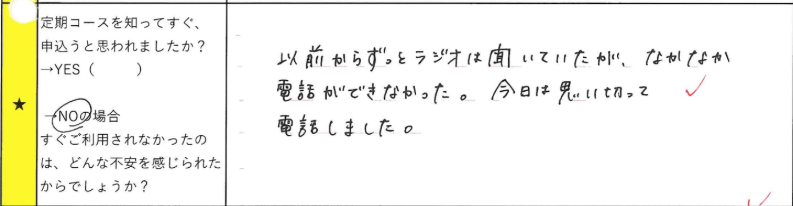 定期コースを知ってすぐ、
申込うと思われましたか？
→YES（　　　）
★
→NOの場合
すぐご利用されなかったの
は、どんな不安を感じられた
からでしょうか？
以前からずっとラジオは聞いていたが、なかなか
電話ができなかった。今日は思い切って
電話しました。